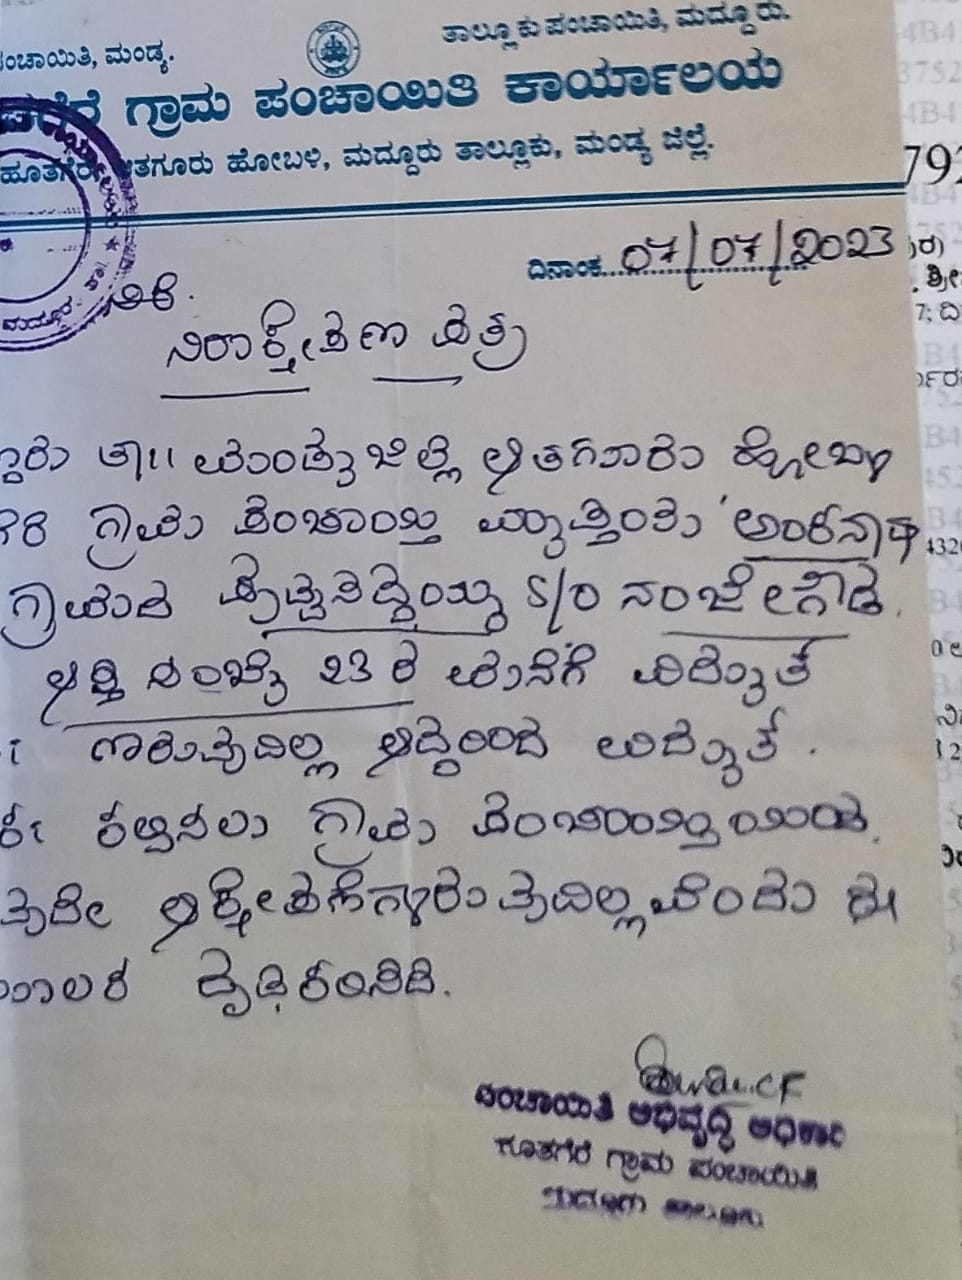 ಪಂಚಾಯಿತಿ, ಮಂಡ್ಯ.
ತಾಲ್ಲೂಕು ಪಂಚಾಯಿತಿ, ಮದ್ದೂರು.
ಗೆರೆ ಗ್ರಾಮ ಪಂಚಾಯಿತಿ ಕಾರ್ಯಾಲಯ
ಹೂತಗೆರೆ, ಆತಗೂರು ಹೋಬಳಿ, ಮದ್ದೂರು ತಾಲ್ಲೂಕು, ಮಂಡ್ಯ ಜಿಲ್ಲೆ.
ದಿನಾಂಕ 07/07/2023
ನಿರಾಕ್ಷೇಪಣಾ ಪತ್ರ
ದ್ದೂರು ತಾ|| ಮಂಡ್ಯ ಜಿಲ್ಲೆ ಆತಗೂರು ಹೋಬಳಿ
ಗೆರೆ ಗ್ರಾಮ ಪಂಚಾಯ್ತಿ ವ್ಯಾಪ್ತಿಯ ಅಂಕನಾಥ
ಗ್ರಾಮದ ಪುಟ್ಟಸಿದ್ದಯ್ಯ S/o ನಂಜೇಗೌಡ.
ಆಸ್ತಿ ಸಂಖ್ಯೆ 23 ರ ಮನೆಗೆ ವಿದ್ಯುತ್
ಇರುವುದಿಲ್ಲ ಆದ್ದರಿಂದ ವಿದ್ಯುತ್.
ಕಲ್ಪಿಸಲು ಗ್ರಾಮ ಪಂಚಾಯ್ತಿಯಿಂದ.
ವುದೇ ಆಕ್ಷೇಪಣೆಗಳಿರುವುದಿಲ್ಲವೆಂದು ಈ
ಮೂಲಕ ದೃಢೀಕರಿಸಿದೆ.
ಪಂಚಾಯಿತಿ ಅಭಿವೃದ್ಧಿ ಅಧಿಕಾರಿ
ಹೂತಗೆರೆ ಗ್ರಾಮ ಪಂಚಾಯಿತಿ
ಮದ್ದೂರು ತಾಲ್ಲೂಕು